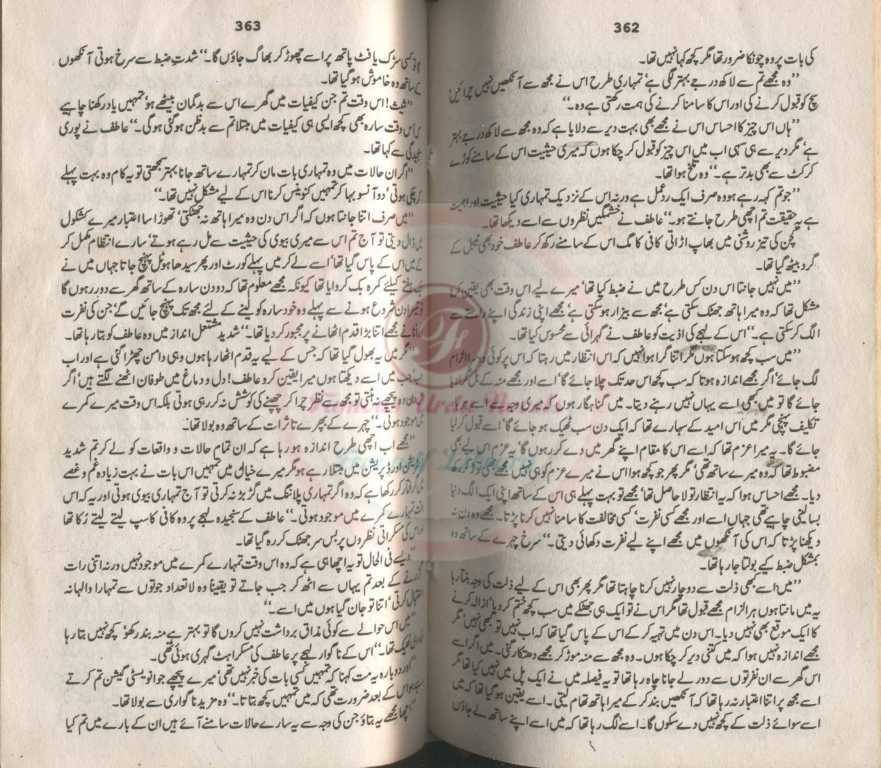 362
کی بات پر وہ چونکا ضرور تھا مگر کچھ کہا نہیں تھا۔
"وہ مجھے تم سے لاکھ درجے بہتر لگی ہے' تمہاری طرح اس نے مجھ سے آنکھیں نہیں چرائیں'
سچ کو قبول کرنے کی اور اس کا سامنا کرنے کی ہمت رکھتی ہے وہ۔"
"ہاں اس چیز کا احساس اس نے مجھے بھی بہت دیر سے دلایا ہے کہ وہ مجھ سے لاکھ درجے بہتر
ہے' مگر دیر سے ہی سہی اب میں اس چیز کو قبول کر چکا ہوں کہ میری حیثیت اس کے سامنے کوڑے
کرکٹ سے بھی بدتر ہے۔" وہ تلخ ہوا تھا۔
"جو تم کہہ رہے ہو وہ صرف ایک ردعمل ہے ورنہ اس کے نزدیک تمہاری کیا حیثیت اور اہمیت
ہے یہ حقیقت تم اچھی طرح جانتے ہو۔" عاطف نے خشمگیں نظروں سے اسے دیکھا تھا۔
کچن کی تیز روشنی میں بھاپ اڑاتی کافی کا مگ اس کے سامنے رکھ کر عاطف خود بھی ٹیبل کے
گرد بیٹھ گیا تھا۔
"میں نہیں جانتا اس دن کس طرح میں نے ضبط کیا تھا' میرے لیے اس وقت بھی یقین کرنا
مشکل تھا کہ وہ میرا ہاتھ جھٹک سکتی ہے' مجھ سے بیزار ہو سکتی ہے' مجھے اپنی زندگی اپنے راستے سے
الگ کر سکتی ہے۔" اس کے لہجے کی اذیت کو عاطف نے گہرائی سے محسوس کیا تھا۔
"میں سب کچھ ہو سکتا ہوں مگر اتنا گرا ہوا نہیں کہ اس انتظار میں رہتا کہ اس پر کوئی دوسرا الزام
لگ جائے' اگر مجھے اندازہ ہوتا کہ سب کچھ اس حد تک چلا جائے گا' اسے اور مجھے منہ کے بل گرایا
جائے گا تو میں بھی اسے یہاں نہیں رہنے دیتا۔ میں گناہگار ہوں کہ میری وجہ سے اسے
تکلیف پہنچی مگر میں اس امید کے سہارے تھا کہ ایک دن سب ٹھیک ہو جائے گا' اسے قبول کر لیا
جائے گا۔ یہ میرا عزم تھا کہ اسے اس کا مقام اپنے گھر میں دے کر رہوں گا' یہ عزم اس لیے بھی
مضبوط تھا کہ وہ میرے ساتھ تھی' مگر پھر جو کچھ ہوا اس نے میرے عزم کو ہی نہیں مجھے بھی توڑ کر رکھ
دیا۔ مجھے احساس ہوا کہ یہ انتظار تو لاحاصل تھا' مجھے تو بہت پہلے ہی اس کے ساتھ اپنی ایک الگ دنیا
بسا لینی چاہیے تھی جہاں اسے اور مجھے کسی نفرت' کسی مخالفت کا سامنا نہیں کرنا پڑتا۔ مجھے وہ دن نہ
دیکھنا پڑتا کہ اس کی آنکھوں میں مجھے اپنے لیے نفرت دکھائی دیتی۔" سرخ چہرے کے ساتھ وہ
بمشکل ضبط کیے بولتا جا رہا تھا۔
"میں اسے بھی ذلت سے دوچار نہیں کرنا چاہتا تھا مگر پھر بھی اس کے لیے ذلت کی وجہ بنتا رہا
یہ میں مانتا ہوں ہر الزام مجھے قبول تھا مگر اس نے تو ایک ہی جھٹکے میں سب کچھ ختم کر دیا' ازالہ کرنے
کا ایک موقع بھی نہیں دیا۔ اس دن میں تہیہ کر کے اس کے پاس گیا تھا کہ اب نہیں تو بھی نہیں' مگر
مجھے اندازہ نہیں ہوا کہ میں کتنی دیر کر چکا ہوں۔ وہ مجھ سے منہ موڑ کر مجھے دھتکار گئی۔ میں اگر اسے
اس گھر سے ان نفرتوں سے دور لے جانا چاہ رہا تھا تو یہ فیصلہ میں نے ایک پل میں نہیں کیا تھا مگر
اسے مجھ پر اتنا اعتبار نہ رہا تھا کہ آنکھیں بند کر کے میرا ہاتھ تھام لیتی۔ اسے یقین ہو گیا تھا کہ میں
اسے سوائے ذلت کے کچھ نہیں دے سکوں گا۔ اسے لگ رہا تھا کہ میں اسے اپنے ساتھ لے جاؤں
363
تو کسی سڑک یا فٹ پاتھ پر اسے چھوڑ کر بھاگ جاؤں گا۔" شدت ضبط سے سرخ ہوتی آنکھوں
کے ساتھ وہ خاموش ہو گیا تھا۔
"شیث! اس وقت تم جن کیفیات میں گھرے اس سے بدگمان بیٹھے ہو' تمہیں یاد رکھنا چاہیے
کہ اس وقت سارہ بھی کچھ ایسی ہی کیفیات میں مبتلا تم سے بدظن ہو گئی ہوگی۔" عاطف نے پوری
سنجیدگی سے کہا تھا۔
"اگر ان حالات میں وہ تمہاری بات مان کر تمہارے ساتھ جانا بہتر سمجھتی تو یہ کام وہ بہت پہلے
کر چکی ہوتی' دو آنسو بہا کر تمہیں کنوینس کرنا اس کے لیے مشکل نہیں تھا۔"
"میں صرف اتنا جانتا ہوں کہ اگر اس دن وہ میرا ہاتھ نہ جھٹکتی' تھوڑا سا اعتبار میرے کشکول
میں ڈال دیتی تو آج تم اس سے میری بیوی کی حیثیت سے مل رہے ہوتے' سارے انتظام مکمل کر
کے میں اس کے پاس گیا تھا' اسے لے کر میں پہلے کورٹ اور پھر سیدھا ہوٹل پہنچ جاتا جہاں میں نے
کیلئے کمرہ بک کروایا تھا کیونکہ مجھے معلوم تھا کہ دو دن سارہ کے ساتھ گھر سے دور رہوں گا
تیسرا دن شروع ہونے سے پہلے وہ خود سارہ کو لینے کے لئے مجھ تک پہنچ جائیں گے' جن کی نفرت
نے مجھے اتنا بڑا قدم اٹھانے پر مجبور کر دیا تھا۔" شدید مشتعل انداز میں وہ عاطف کو بتا رہا تھا۔
مگر میں یہ بھول گیا تھا کہ جس کے لیے یہ قدم اٹھا رہا ہوں وہی دامن چھڑا گئی ہے اور اب
جب میں اسے دیکھتا ہوں میرا یقین کرو عاطف! دل و دماغ میں طوفان اٹھنے لگتے ہیں' اگر
وہ پیچھے نہ ہٹتی تو مجھ سے نظر چرا کر چھپنے کی کوشش نہ کر رہی ہوتی بلکہ اس وقت میرے کمرے
میں موجود ہوتی۔" چہرے پر تناؤ کے تاثرات کے ساتھ وہ بولا تھا۔
"مجھے اب اچھی طرح اندازہ ہو رہا ہے کہ ان تمام حالات و واقعات کو لے کر تم شدید
ٹینشن اور ڈپریشن میں مبتلا رہے ہو مگر میرے خیال میں تمہیں اس بات نے بہت زیادہ غم و غصے
میں گرفتار کر رکھا ہے کہ وہ اگر تمہاری پلاننگ میں گڑبڑ نہ کرتی تو آج تمہاری بیوی ہوتی اور یہ کہ اس
وقت تمہارے کمرے میں موجود ہوتی۔" عاطف کے سنجیدہ لہجے پر وہ کافی کا سپ لیتے لیتے رکا تھا
اور اس کی مسکراتی نظروں پر بس سر جھٹک کر رہ گیا تھا۔
"ویسے فی الحال تو یہ اچھا ہی ہے کہ وہ اس وقت تمہارے کمرے میں موجود نہیں ورنہ اتنی رات
گزرنے کے بعد تم یہاں سے اٹھ کر جب جاتے تو یقیناً وہ لاتعداد جوتوں سے تمہارا والہانہ
استقبال کرتی' اتنا تو جان گیا ہوں میں اسے۔"
"میں اس حوالے سے کوئی مذاق برداشت نہیں کروں گا تو بہتر ہے منہ بند رکھو' کچھ نہیں بتا رہا
ٹھیک تھا۔" اس کے ناگوار لہجے پر عاطف کی مسکراہٹ گہری ہوئی تھی۔
"اور دوبارہ یہ مت کہنا کہ تمہیں کسی بات کی خبر نہیں تھی' میرے پیچھے جو انویسٹی گیشن تم کرتے
رہے ہو اس کے بعد ضرورت تھی کہ میں تمہیں کچھ بتاتا۔" وہ مزید ناگواری سے بولا تھا۔
"اچھا' مجھے یہ بتاؤ جن کی وجہ سے یہ سارے حالات سامنے آئے ہیں ان کے بارے میں تم کیا